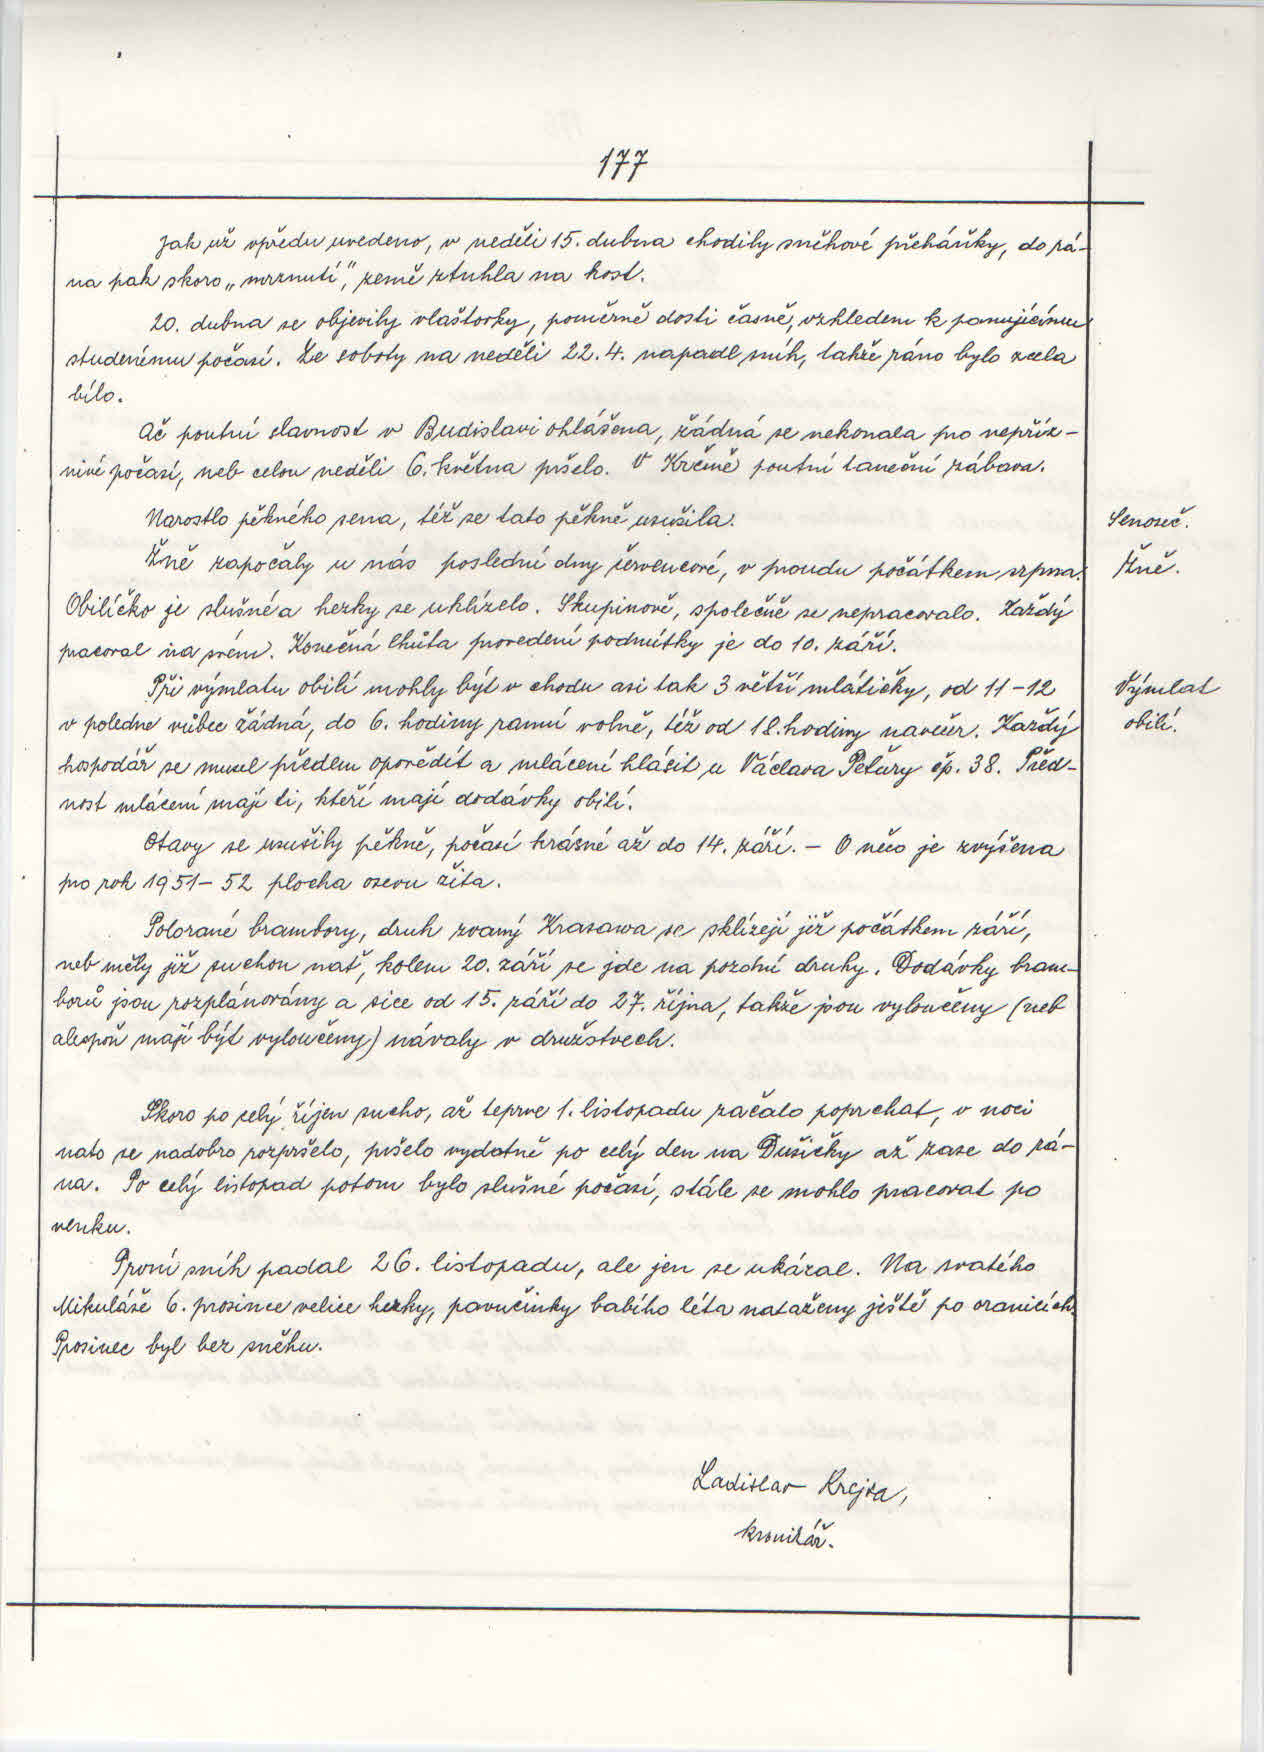 177
Jak už vpředu uvedeno, v neděli 15. dubna chodily sněhové přeháňky, do rá-
na pak skoro „mrznutí“, země ztuhla na kost.
20. dubna se objevily vlaštovky, poměrně dosti časně, vzhledem k panujícímu
studenému počasí. Ze soboty na neděli 22. 4. napadl sníh, takže ráno bylo zcela
bílo.
Ač poutní slavnost v Budislavi ohlášena, žádná se nekonala pro nepříz-
nivé počasí, neb celou neděli 6. května pršelo. V Krčmě poutní taneční zábava.
Narostlo pěkného sena, též se tato pěkně usušila.
Senoseč.
Žně započaly u nás poslední dny červencové, v proudu počátkem srpna.
Žně.
Obilíčko je slušné a hezky se uklízelo. Skupinově, společně se nepracovalo. Každý
pracoval na svém. Konečná lhůta provedení podmítky je do 10. září.
Při výmlatu obilí mohly být v chodu asi tak 3 větší mlátičky, od 11-12
Výmlat
v poledne vůbec žádná, do 6. hodiny ranní volně, též od 18. hodiny navečer. Každý
obilí.
hospodář se musel předem opovědít a mlácení hlásit u Václava Pešury čp. 38. Před-
nost mlácení mají ti, kteří mají dodávky obilí.
Otavy se usušily pěkně, počasí krásné až do 14. září. - O něco je zvýšena
pro rok 1951-52 plocha osevu žita.
Polorané brambory, druh zvaný Krasawa se sklízejí již počátkem září,
neb měly již suchou nať, kolem 20. září se jde na pozdní druhy. Dodávky bram-
borů jsou rozplánovány a sice od 15. září do 27. října, takže jsou vyloučeny (neb
alespoň mají být vyloučeny) návaly v družstvech.
Skoro po celý říjen sucho, až teprve 1. listopadu začalo poprchat, v noci
nato se nadobro rozpršelo, pršelo vydatně po celý den na Dušičky až zase do rá-
na. Po celý listopad potom bylo slušné počasí, stále se mohlo pracovat po
venku.
První sníh padal 26. listopadu, ale jen se ukázal. Na svatého
Mikuláše 6. prosince velice hezky, pavučinky babího léta nataženy ještě po oranicích.
Prosinec byl bez sněhu.
Ladislav Krejsa,
kronikář.